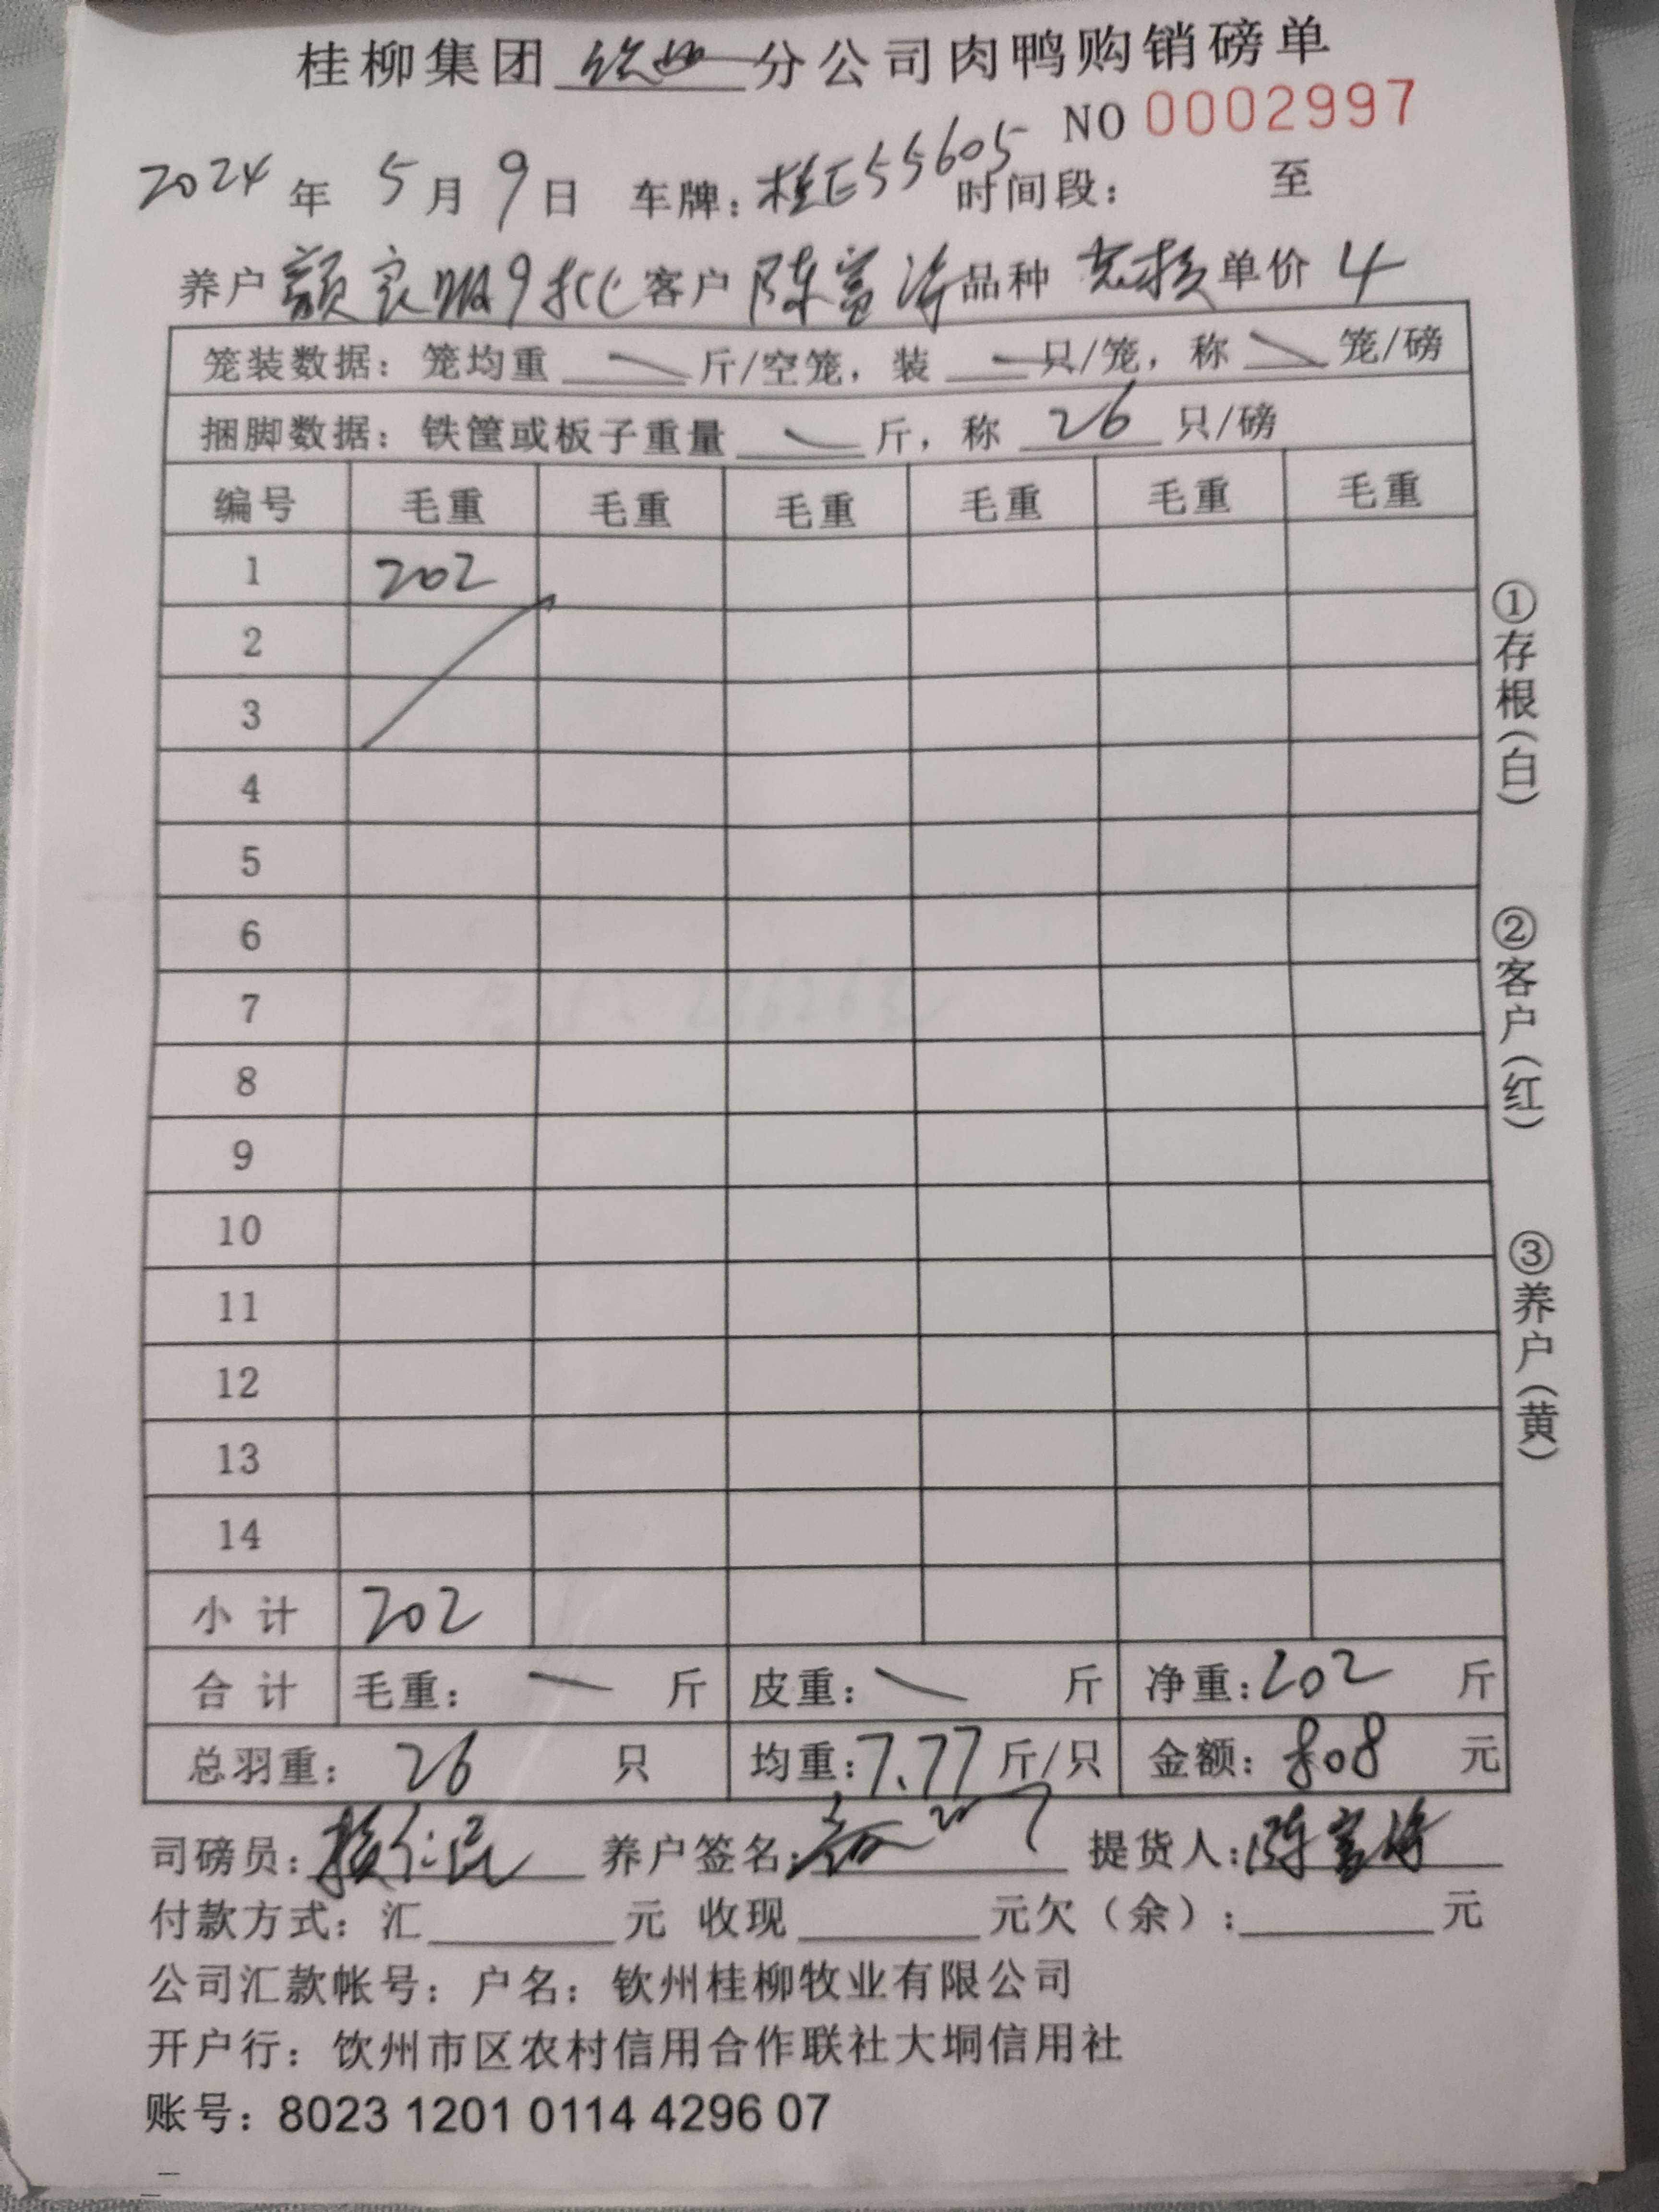 桂柳集团 钦州 分公司肉鸭购销磅单
NO 0002997
2024 年 5 月 9 日 车牌：桂E55605 时间段： 至
养户 颜良 9批 客户 陈富 品种 单价 4
笼装数据：笼均重 斤/空笼，装 只/笼，称 笼/磅
捆脚数据：铁筐或板子重量 斤，称 26 只/磅
编号 毛重 毛重 毛重 毛重 毛重 毛重
1 202
2
3
4
5
6
7
8
9
10
11
12
13
14
小计 202
合计 毛重： 斤 皮重： 斤 净重：202 斤
总羽重： 26 只 均重：7.77 斤/只 金额：808 元
司磅员： 养户签名： 提货人：陈富
付款方式：汇 元 收现 元欠（余）： 元
公司汇款帐号：户名：钦州桂柳牧业有限公司
开户行：钦州市区农村信用合作联社大垌信用社
账号：8023 1201 0114 4296 07
①存根（白）
②客户（红）
③养户（黄）